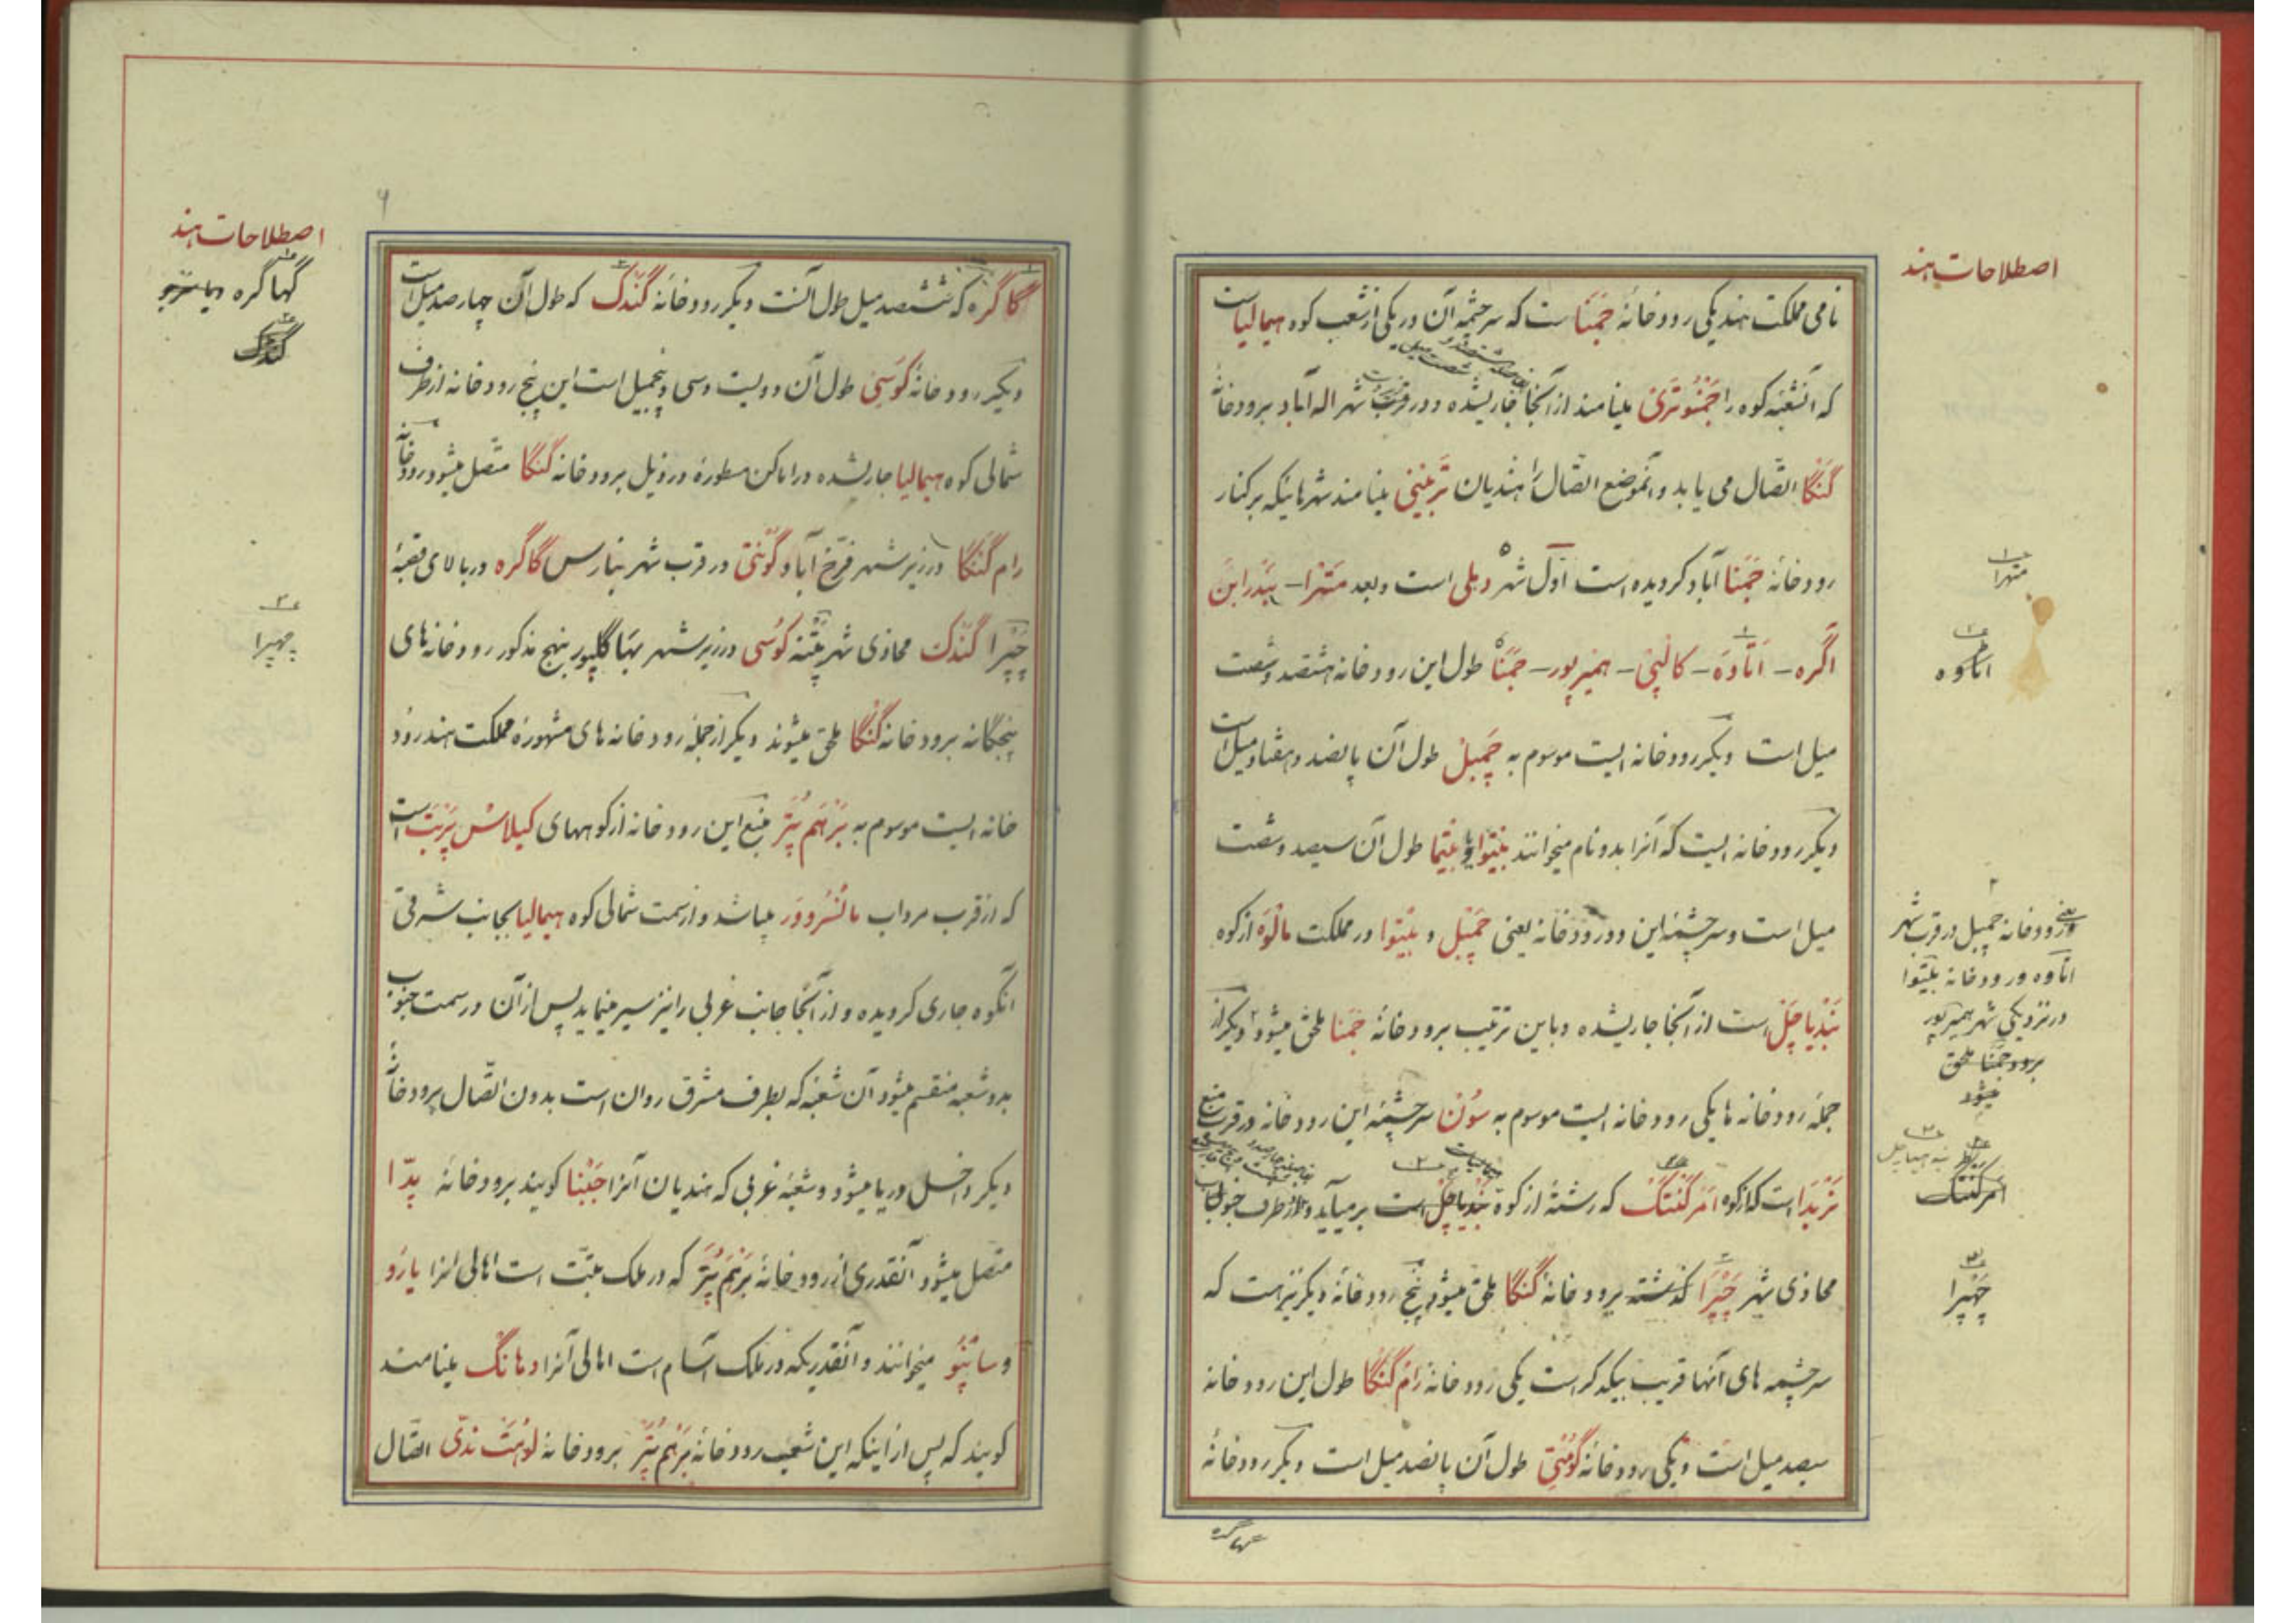 اصطلاحات هند
نامی مملکت هند یکی رودخانهٔ جَمَنا ست که سرچشمه آن در یکی از شعب کوه هیمالیا است
که آنشعبه کوه را جَمنُوتَری مینامند از آنجا جاریشده و در قرب شهر اله آباد برودخانهٔ
گنگا اتصّال می یابد و آنموضع اتصّال را هندیان تَربینی مینامند شهرهائیکه بر کنار
رودخانه جَمَنا آباد کردیده است اوّل شهر دهلی است و بعد مَتَرا – بَندرابَن
اگره – اَتاوَه – کالپی – همیرپور – جَمَنا طول این رودخانه هشتصد و شصت
میل است دیگر رودخانه ایست موسوم به چَمبل طول آن پانصد و هفتاد میل است
دیگر رودخانه ایست که آنرا بدو نام میخوانند بیتوا و یا بیتما طول آن سیصد و شصت
میل است و سرچشمهٔ این دو رودخانه یعنی چَمبل و بیتوا در مملکت مالوَه از کوه
بَندیاچَل است از آنجا جاریشده و باین ترتیب برودخانهٔ جَمَنا ملحق میشود و دیگر از
جملهٔ رودخانه ها یکی رودخانه ایست موسوم به سُون سرچشمهٔ این رودخانه در قرب منبع
نَربَدا است که از کوه اَمَرکَنتَک که رشتهٔ از کوه بَندیاچل است برمیآید و از طرف جنوب
محاذی شهر چَپرا گذشته برودخانهٔ گنگا ملحق میشود پنج رودخانهٔ دیگر نیز هست که
سرچشمه های آنها قریب بیکدیگر است یکی رودخانه رام گنگا طول این رودخانه
سیصد میل است و یکی رودخانه گومتی طول آن پانصد میل است دیگر رودخانهٔ
گهاگره
متهرا
اتاوه
رودخانه چمبل در قرب شهر
اتاوه و رودخانه بیتوا
در نزدیکی شهر همیرپور
برود جَمَنا ملحق
میشود
امرکنتک
چَهپرا
اصطلاحات هند
گاگره که ششصد میل طول آنست دیگر رودخانهٔ گندک که طول آن چهار صد میل است
دیگر رودخانهٔ کوسی طول آن دویست و سی و پنجمیل است این پنج رودخانه از طرف
شمالی کوه هیمالیا جاریشده در اماکن مسطورهٔ در ذیل برودخانه گنگا متصّل میشود رودخانه
رام گنگا در زیر شهر فرّخ آباد گومتی در قرب شهر بنارس گاگره در بالای قصبهٔ
چَپرا گندک محاذی شهر پتنه کوسی در زیر شهر بهاگلپور بنهج مذکور رودخانه‌های
پنجگانه برودخانه گنگا ملحق میشوند دیگر از جملهٔ رودخانه های مشهورهٔ مملکت هند رود
خانه ایست موسوم به بَرهَم پُتر منبع این رودخانه از کوههای کیلاس پَربَت است
که از قرب مرداب مانسُروور میباشد و از سمت شمالی کوه هیمالیا بجانب شرقی
آنکوه جاری کردیده و از آنجا جانب غربی را نیز سیر مینماید پس از آن در سمت جنوب
بدو شعبه منقسم میشود آن شعبهٔ که بطرف مشرق روان است بدون اتصّال برودخانهٔ
دیگر داخل دریا میشود و شعبهٔ غربی که هندیان آنرا جَبنا گویند برودخانهٔ پدّا
متصل میشود آنقدری از رودخانهٔ بَرهَم پُتر که در ملک تبّت است اهالی آنرا یارُو
و سانپُو میخوانند و آنقدریکه در ملک آسام است اهالی آنرا دهانگ مینامند
گویند که پس از اینکه این شعب رودخانهٔ بَرهَم پُتر برودخانهٔ لوهت ندّی اتصّال
گهاگره
چهپرا